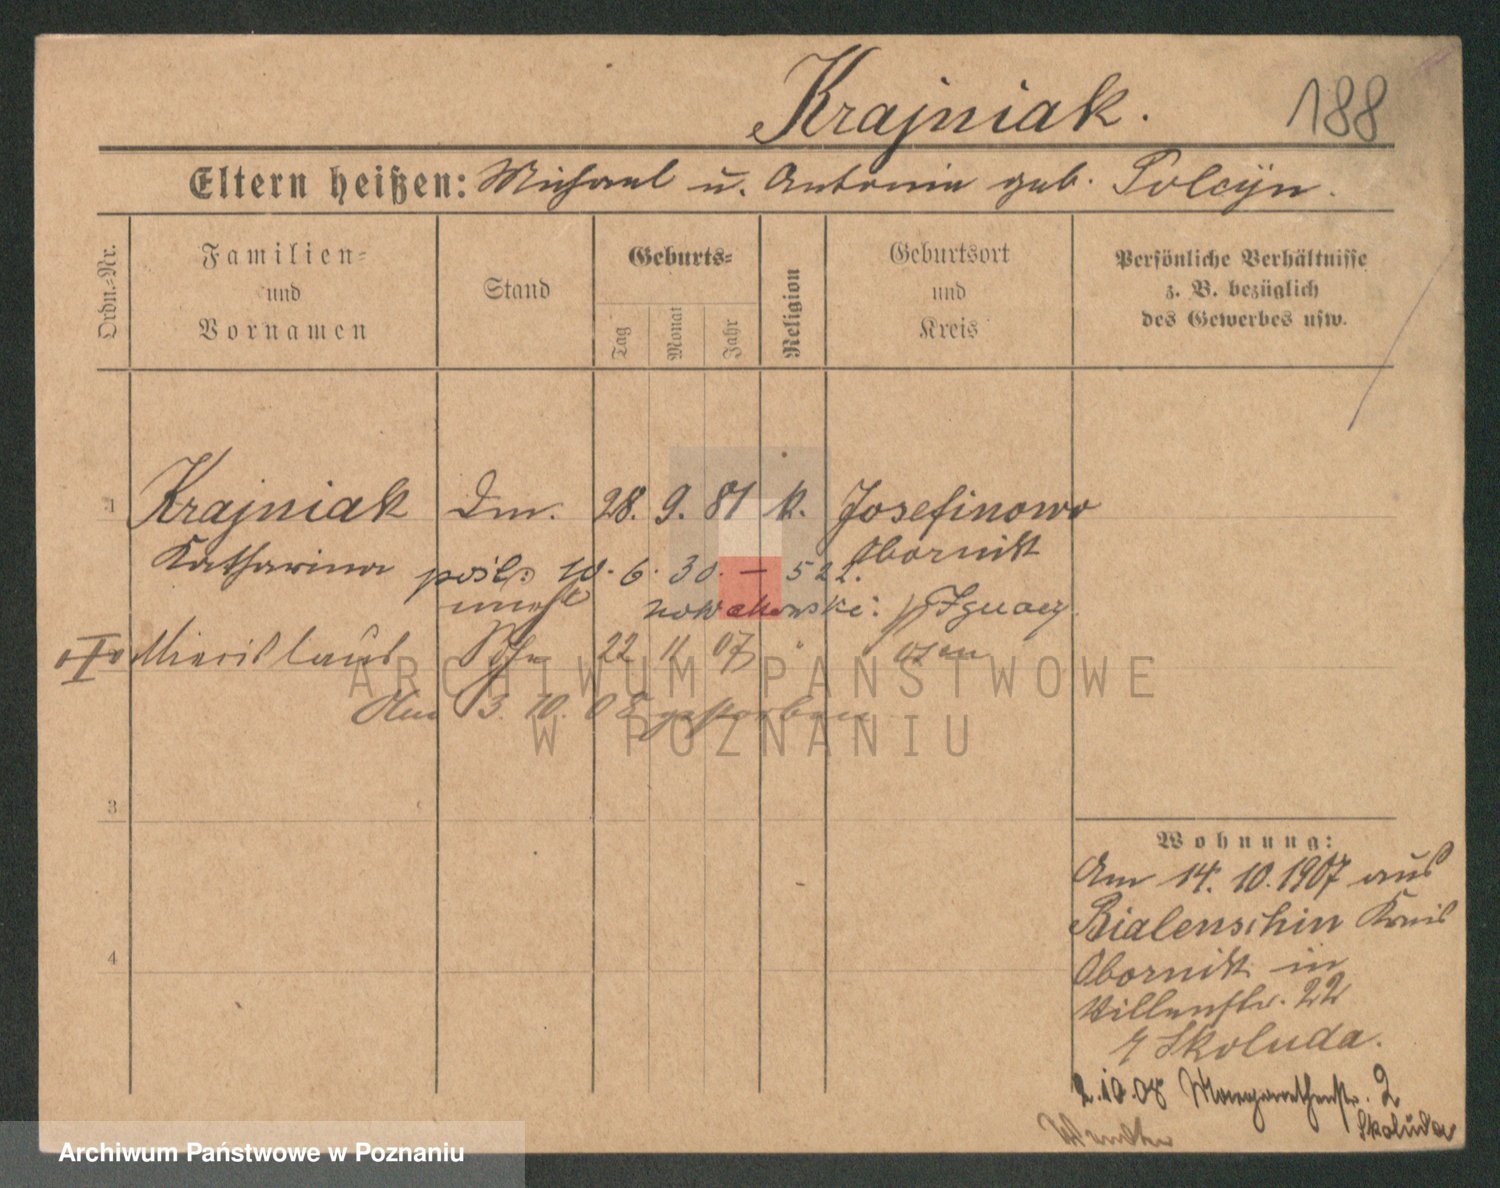 Krajniak. 188
Eltern heißen: Michael u. Antonie geb. Polcÿn.
Ordn.-Nr.
Familien-
und
Vornamen
Stand
Geburts-
Tag
Monat
Jahr
Religion
Geburtsort
und
Kreis
Persönliche Verhältnisse
z. B. bezüglich
des Gewerbes usw.
1 Krajniak Dm. 28. 9. 81 k. Josefinowo
Katharina Obornik
10. 6. 30. — 522.
nowakowski Ignacy.
I 22 11 07 "
3. 10. 08 gestorben
3
4
Wohnung:
Am 14. 10. 1907 aus
Bialenschin Kreis
Obornik in
Villenstr. 22
Skoluda.
2.10.08 Margarethenstr. 2
Skoluda
ARCHIWUM PAŃSTWOWE
W POZNANIU
Archiwum Państwowe w Poznaniu